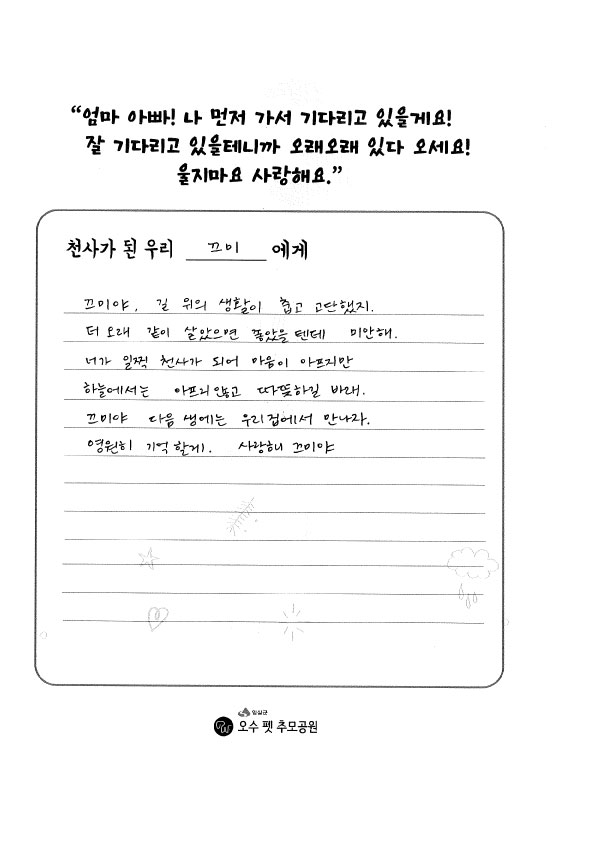 “엄마 아빠! 나 먼저 가서 기다리고 있을게요!
잘 기다리고 있을테니까 오래오래 있다 오세요!
울지마요 사랑해요.”
천사가 된 우리 끄미 에게
끄미야, 길 위의 생활이 춥고 고단했지.
더 오래 같이 살았으면 좋았을 텐데 미안해.
너가 일찍 천사가 되어 마음이 아프지만
하늘에서는 아프지 않고 따뜻하길 바래.
끄미야 다음 생에는 우리집에서 만나자.
영원히 기억할게. 사랑해 끄미야
임실군
오수 펫 추모공원